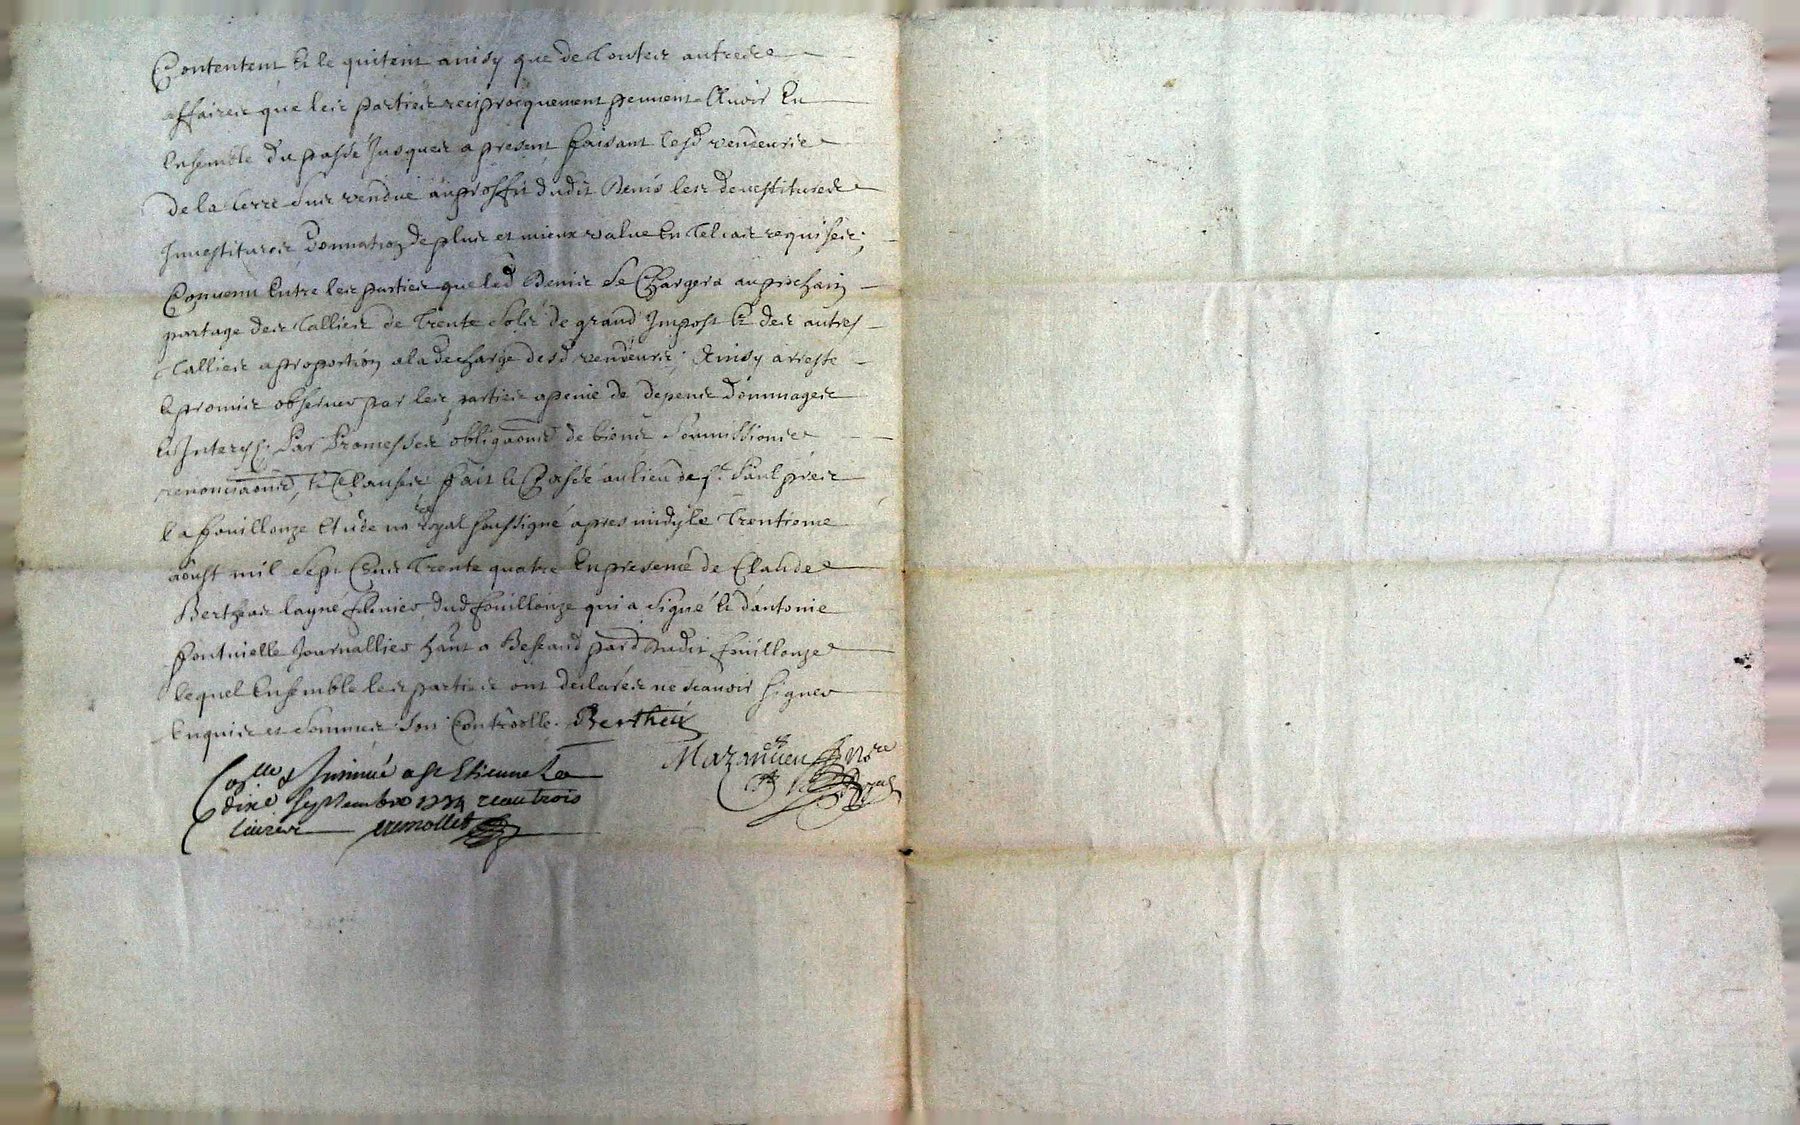 Contentent et le quitent ainsy que de touttes autres
affaires que les parties reciprocquement peuvent avoir eu
Ensemble du passé jusques a present faisant lesd vendeurs
De la terre sus vendue au proffit dudit Denis les devestitures
Investitures donnation de plus et mieux value en tel cas requises;
Convenu Entre les parties que led Denis se Chargera au prochain
partage des tallies de Trente sols de grand Impost et des autres
tallies a proportion a la decharge desd vendeurs; Ainsy arresté
et promis observer par les parties a peine de depens dommages
et Interests; Par Promesses obligaons de biens soumissions
renonciaons, et Clauses fait et Passé au lieu de st. Paul pres
la fouillouze Etude no re Royal soussigné apres midy le Trentieme
aoust mil sept Cens Trente quatre En presence de Claude
Bertheas layné dud fouillouze qui a signé et dantoine
fontvielle Journallier hant a dudit fouillouze
lequel Ensemble les parties ont declarés ne scavoir signer
Enquis et sommés soit Controolle. Bertheas
Collé & Insinué a St Etienne Le Mazancieu No re
dixe septembre 1734 receu trois Royal
livres